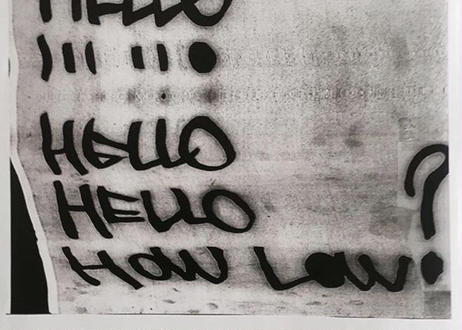 HELLO
HELLO
HELLO
HOW LOW?